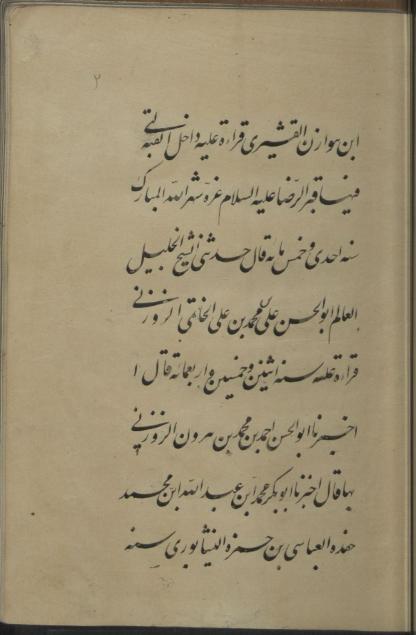 ٢
ابن هوازن القشيري قراءة عليه داخل القبة التي
فيها قبر الرضا عليه السلام غرة شهر الله المبارك
سنه احدى و خمس مائة قال حدثني الشيخ الجليل
العالم ابو الحسن علي بن محمد بن علي الحاتمي الزوزني
قراءة عليه سنه اثنين و خمسين و اربعمائة قال ا
اخبرنا ابو الحسن احمد بن محمد بن هرون الزوزني
بها قال اخبرنا ابو بكر محمد ابن عبد الله ابن محمد
حفده العباسى بن حمزه النيشابورى سنه